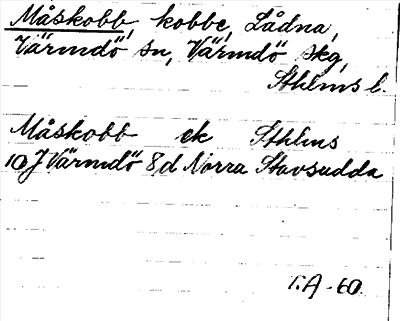 Måskobb, kobbe, Lådna,
Värmdö sn, Värmdö skg,
Sthlms l.
Måskobb ek Sthlms
10J Värmdö 8d Norra Stavsudda
T.A -60.